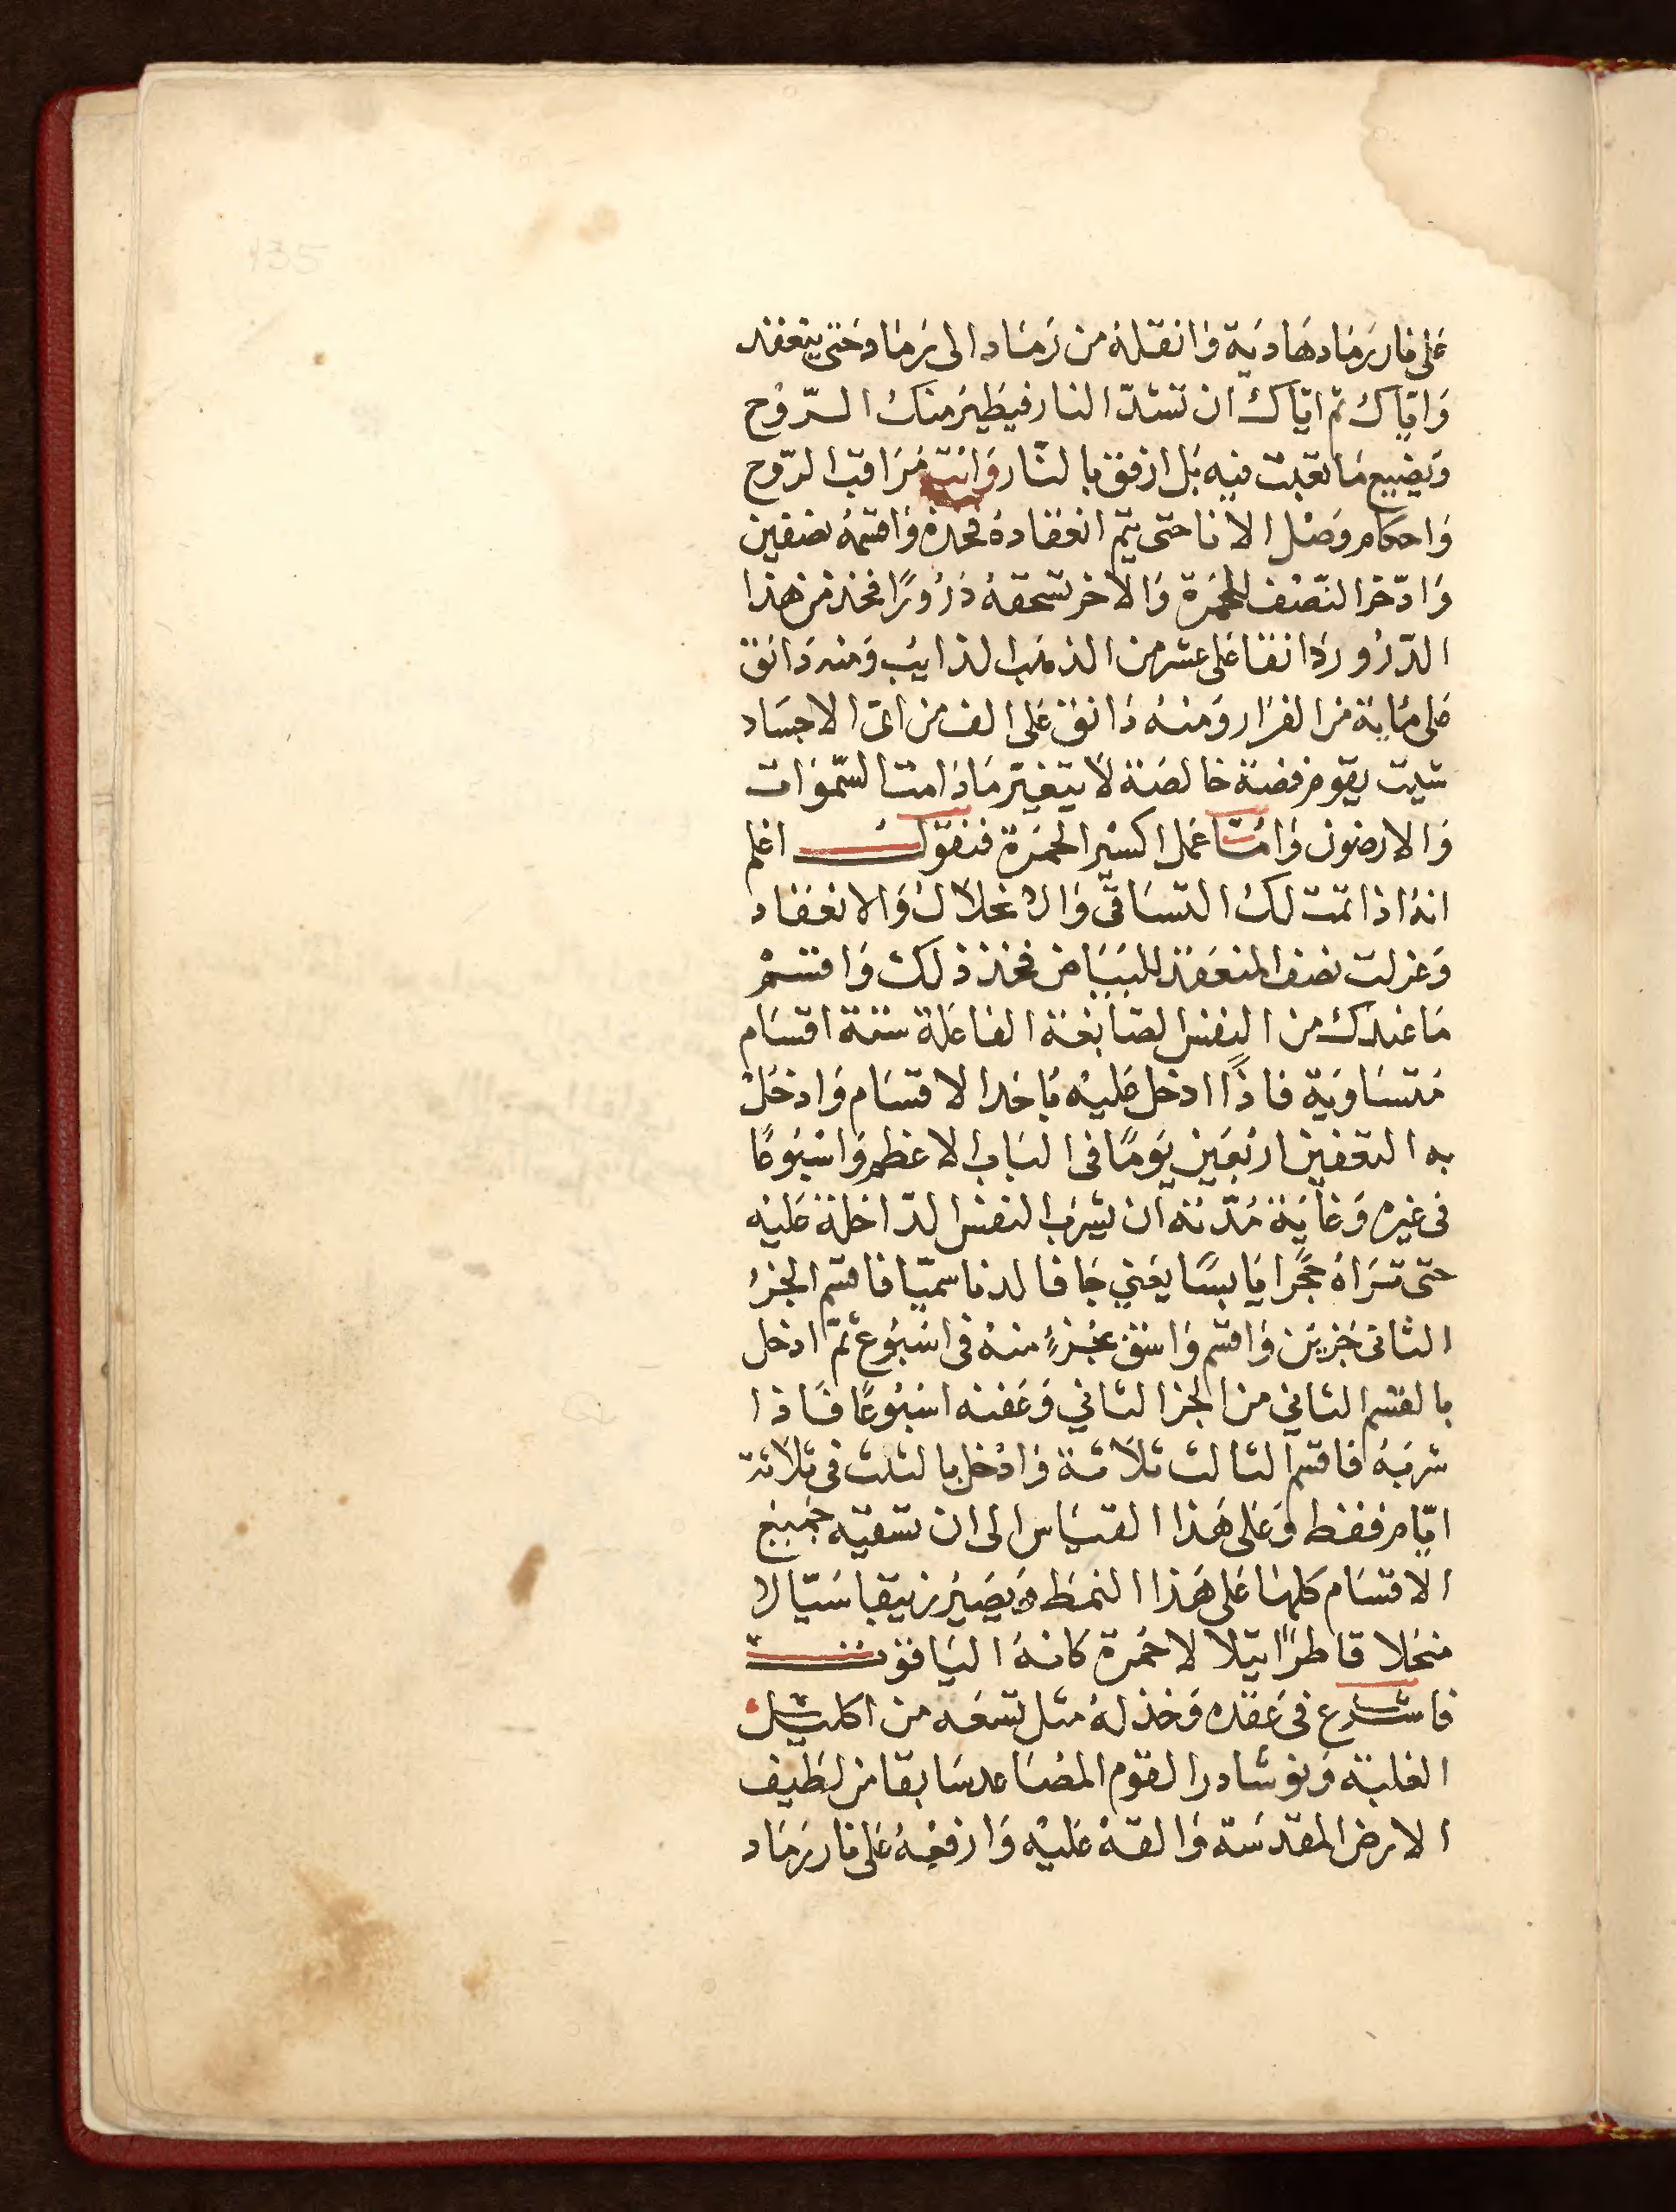 على نار رماد هادية وانقله من رماد الى رماد حتى ينعقد
واياك ثم اياك ان تشتد النار فيطير منك الروح
ويضيع ما تعبت فيه بل ارفق بالنار وانت مراقب الروح
واحكام وصل الانا حتى يتم انعقاده فخذه واقسمه نصفين
وادّخر النّصف للحمرة والاخر تسحقه ذرورًا فخذ من هذا
الذرور دانقا على عشر من الذهب الذايب ومنه دانق
على ماية من الفرار ومنه دانق على الف من اى الاجساد
شيت يقوم فضة خالصة لا يتغير ما دامت السّموات
والارضون وامّا عمل اكسير الحمرة فنقول اعلم
انه اذا تمت لك التساقى والانحلال والانعقاد
وعزلت نصف المنعقد للبياض فخذ ذلك واقسم
ما عندك من النفس الصابغة الفاعلة ستة اقسام
متساوية فاذًا ادخل عليه باحد الاقسام وادخل
به التعفين اربعين يومًا فى الباب الاعظم واسبوعًا
فى غيره وغاية مدّته ان يشرب النفس الدّاخلة عليه
حتى تراه حجرا يابسًا يعني جافا لدنا سميّا فاقسم الجزء
الثانى جزين واقسم واسق بجزءٍ منه فى اسبوع ثم ادخل
بالقسم الثاني من الجز الثاني وعفنه اسبوعًا فاذا
شربه فاقسم الثالث ثلاثة وادخل بالثلث فى ثلاثة
ايّام فقط وعلى هذا القياس الى ان تسقيه جميع
الاقسام كلها على هذا النمط ويصير زيبقا سيّالا
منحلا قاطرًا يتلالا حمرة كانه الياقوت
فاشرع فى عقده وخذ له مثل تسعه من اكليل
الغلبة ونوشادر القوم المصاعد سابقا من لطيف
الارض المقدسة والقه عليه وارفعه على نار رماد